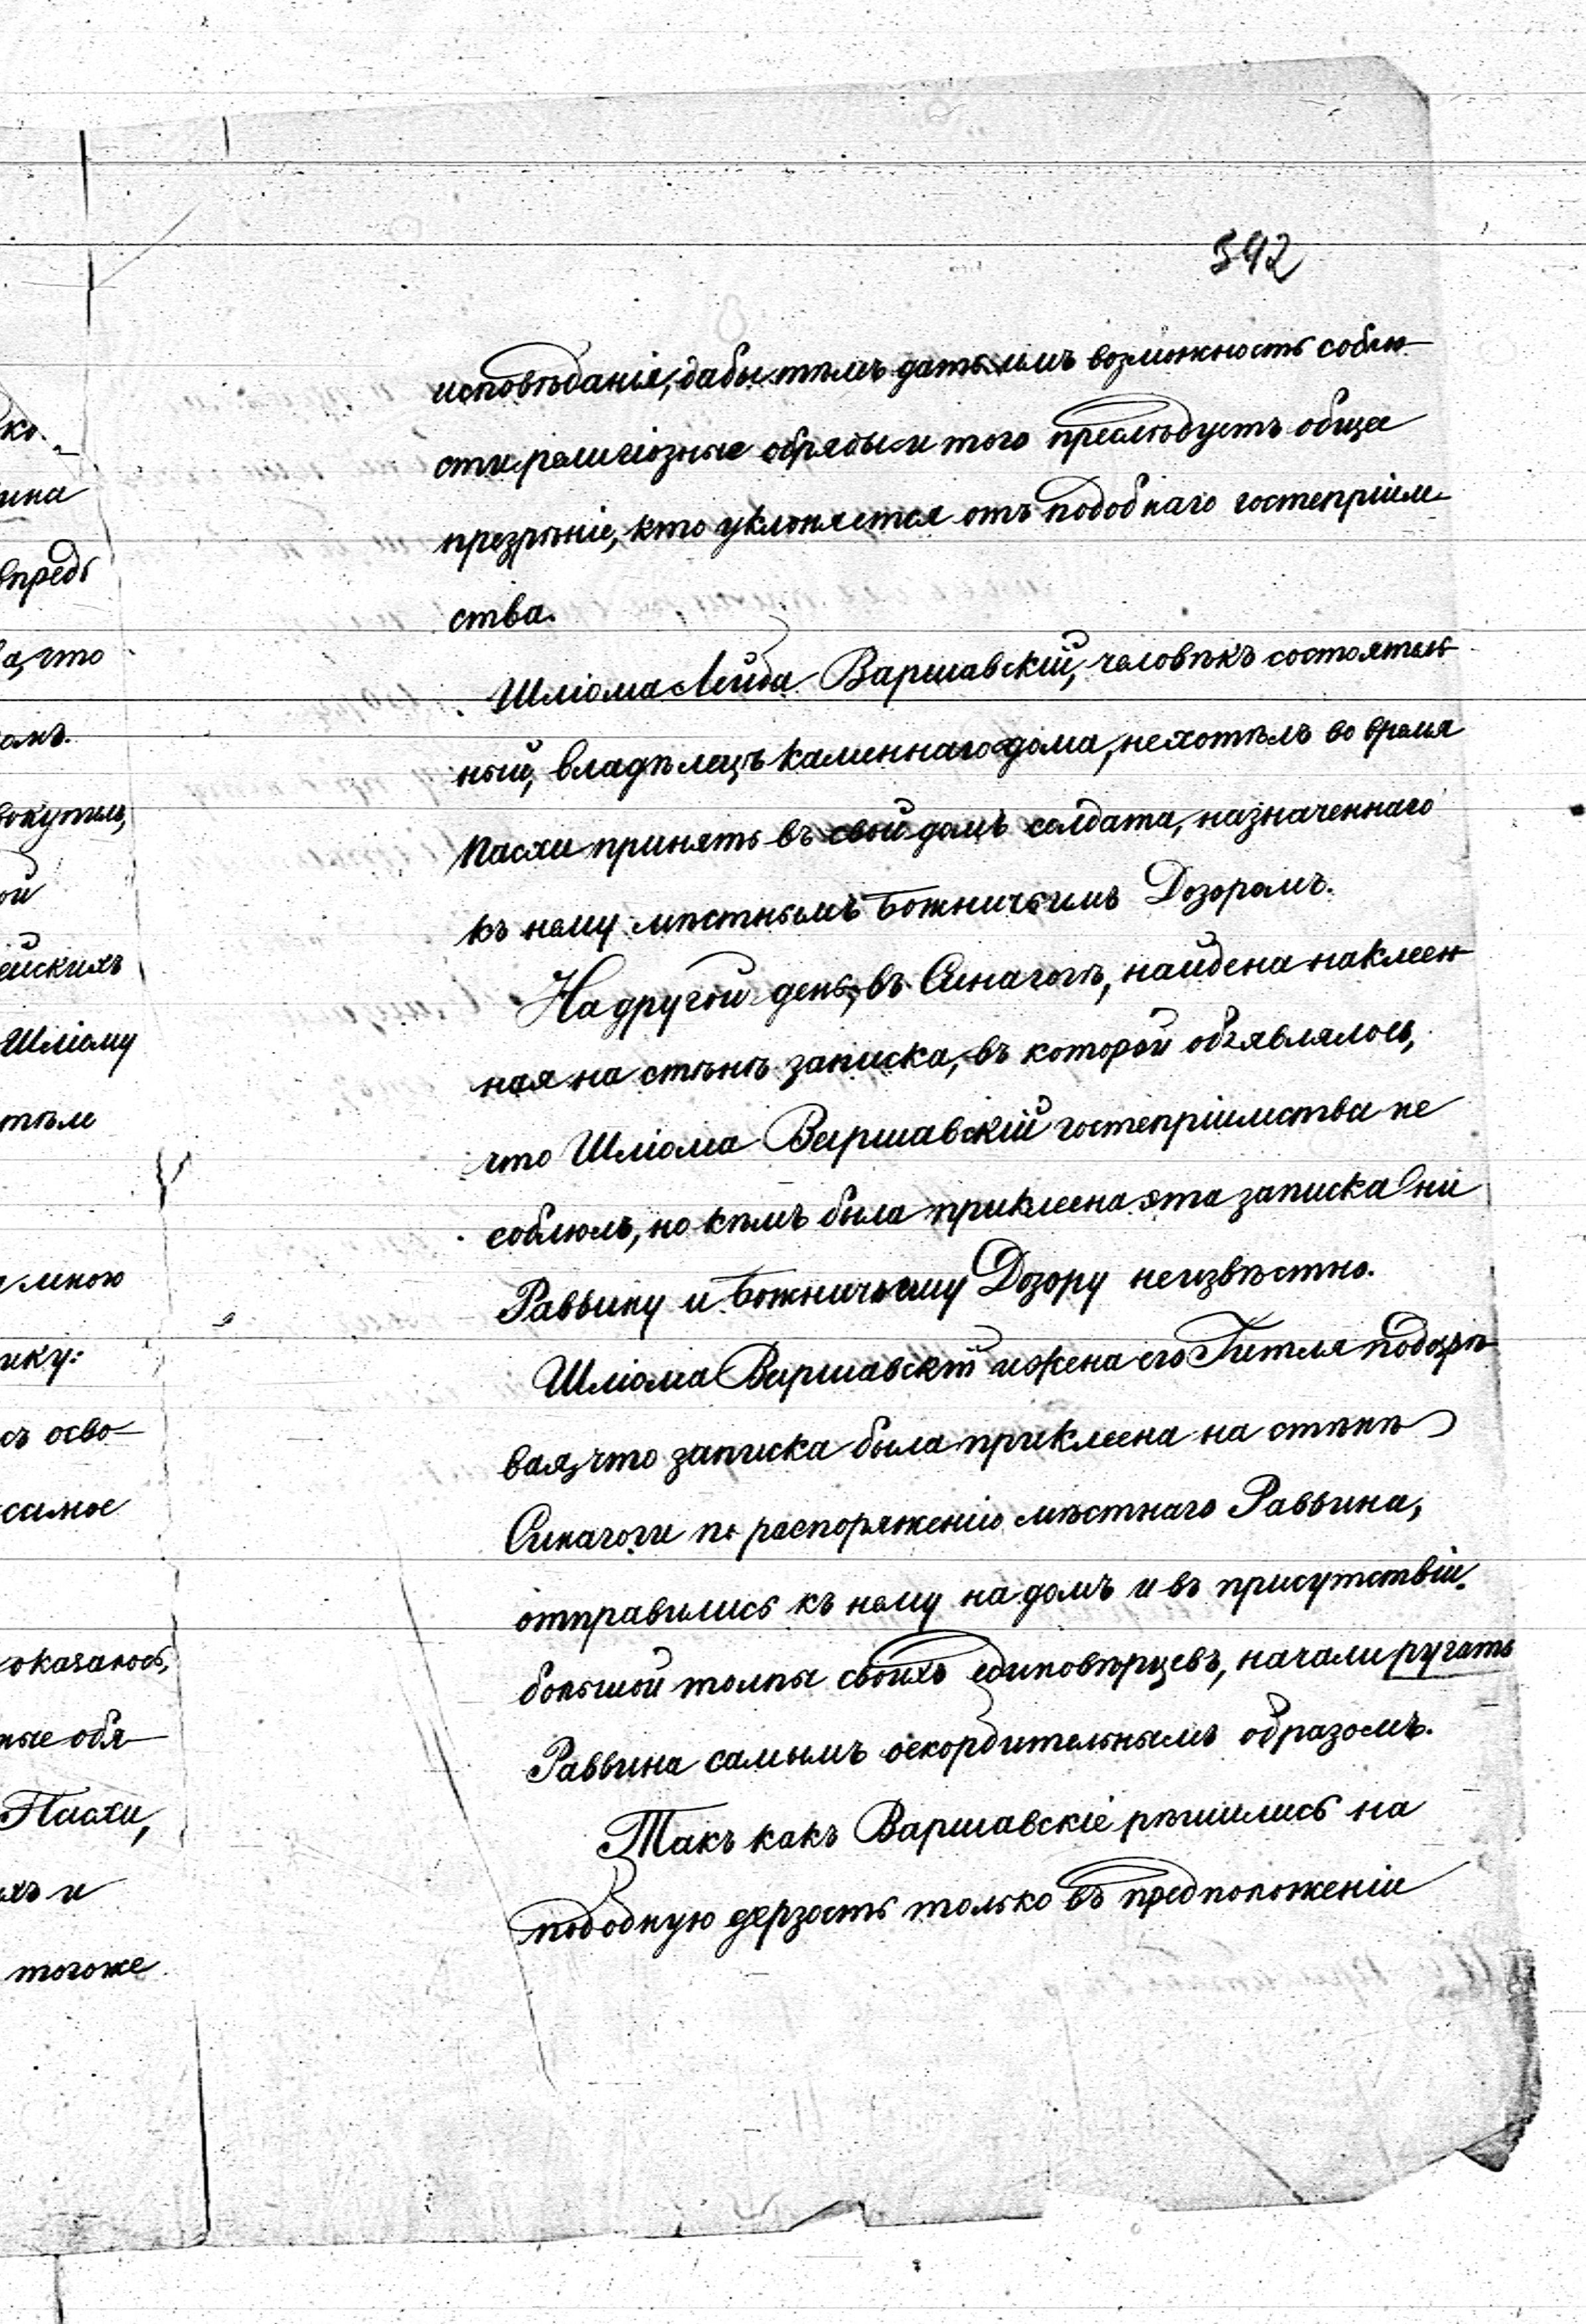 342
исповѣданія, дабы тѣмъ дать имъ возможность соблю-
сти религіозные обряды и того преслѣдуетъ общее
презрѣніе, кто уклоняется отъ подобнаго гостепріим-
ства.
Шліома Лейба Варшавскій, человѣкъ состоятель-
ный, владѣлецъ каменнаго дома, не хотѣлъ во время
Пасхи принять въ свой домъ солдата, назначеннаго
къ нему мѣстнымъ Божничьимъ Дозоромъ.
На другой день, въ Синагогѣ, найдена наклеен-
ная на стѣнѣ записка, въ которой объявлялось,
что Шліома Варшавскій гостепріимства не
соблюлъ, но кѣмъ была приклеена эта записка ни
Раввину и Божничьему Дозору неизвѣстно.
Шліома Варшавскій и жена его Гитля подозрѣ-
вая, что записка была приклеена на стѣнѣ
Синагоги по распоряженію мѣстнаго Раввина,
отправились къ нему на домъ и въ присутствіи
большой толпы своихъ единовѣрцевъ, начали ругать
Раввина самымъ оскорбительнымъ образомъ.
Такъ какъ Варшавскіе рѣшились на
подобную дерзость только въ предположеніи
ко-
ина
впредь
а, что
омъ.
вокупиль,
ой
ейскихъ
Шліому
тѣле
мною
ику:
съ осво-
самое
оказалось,
ные обя-
Пасхи,
хъ и
тогоже